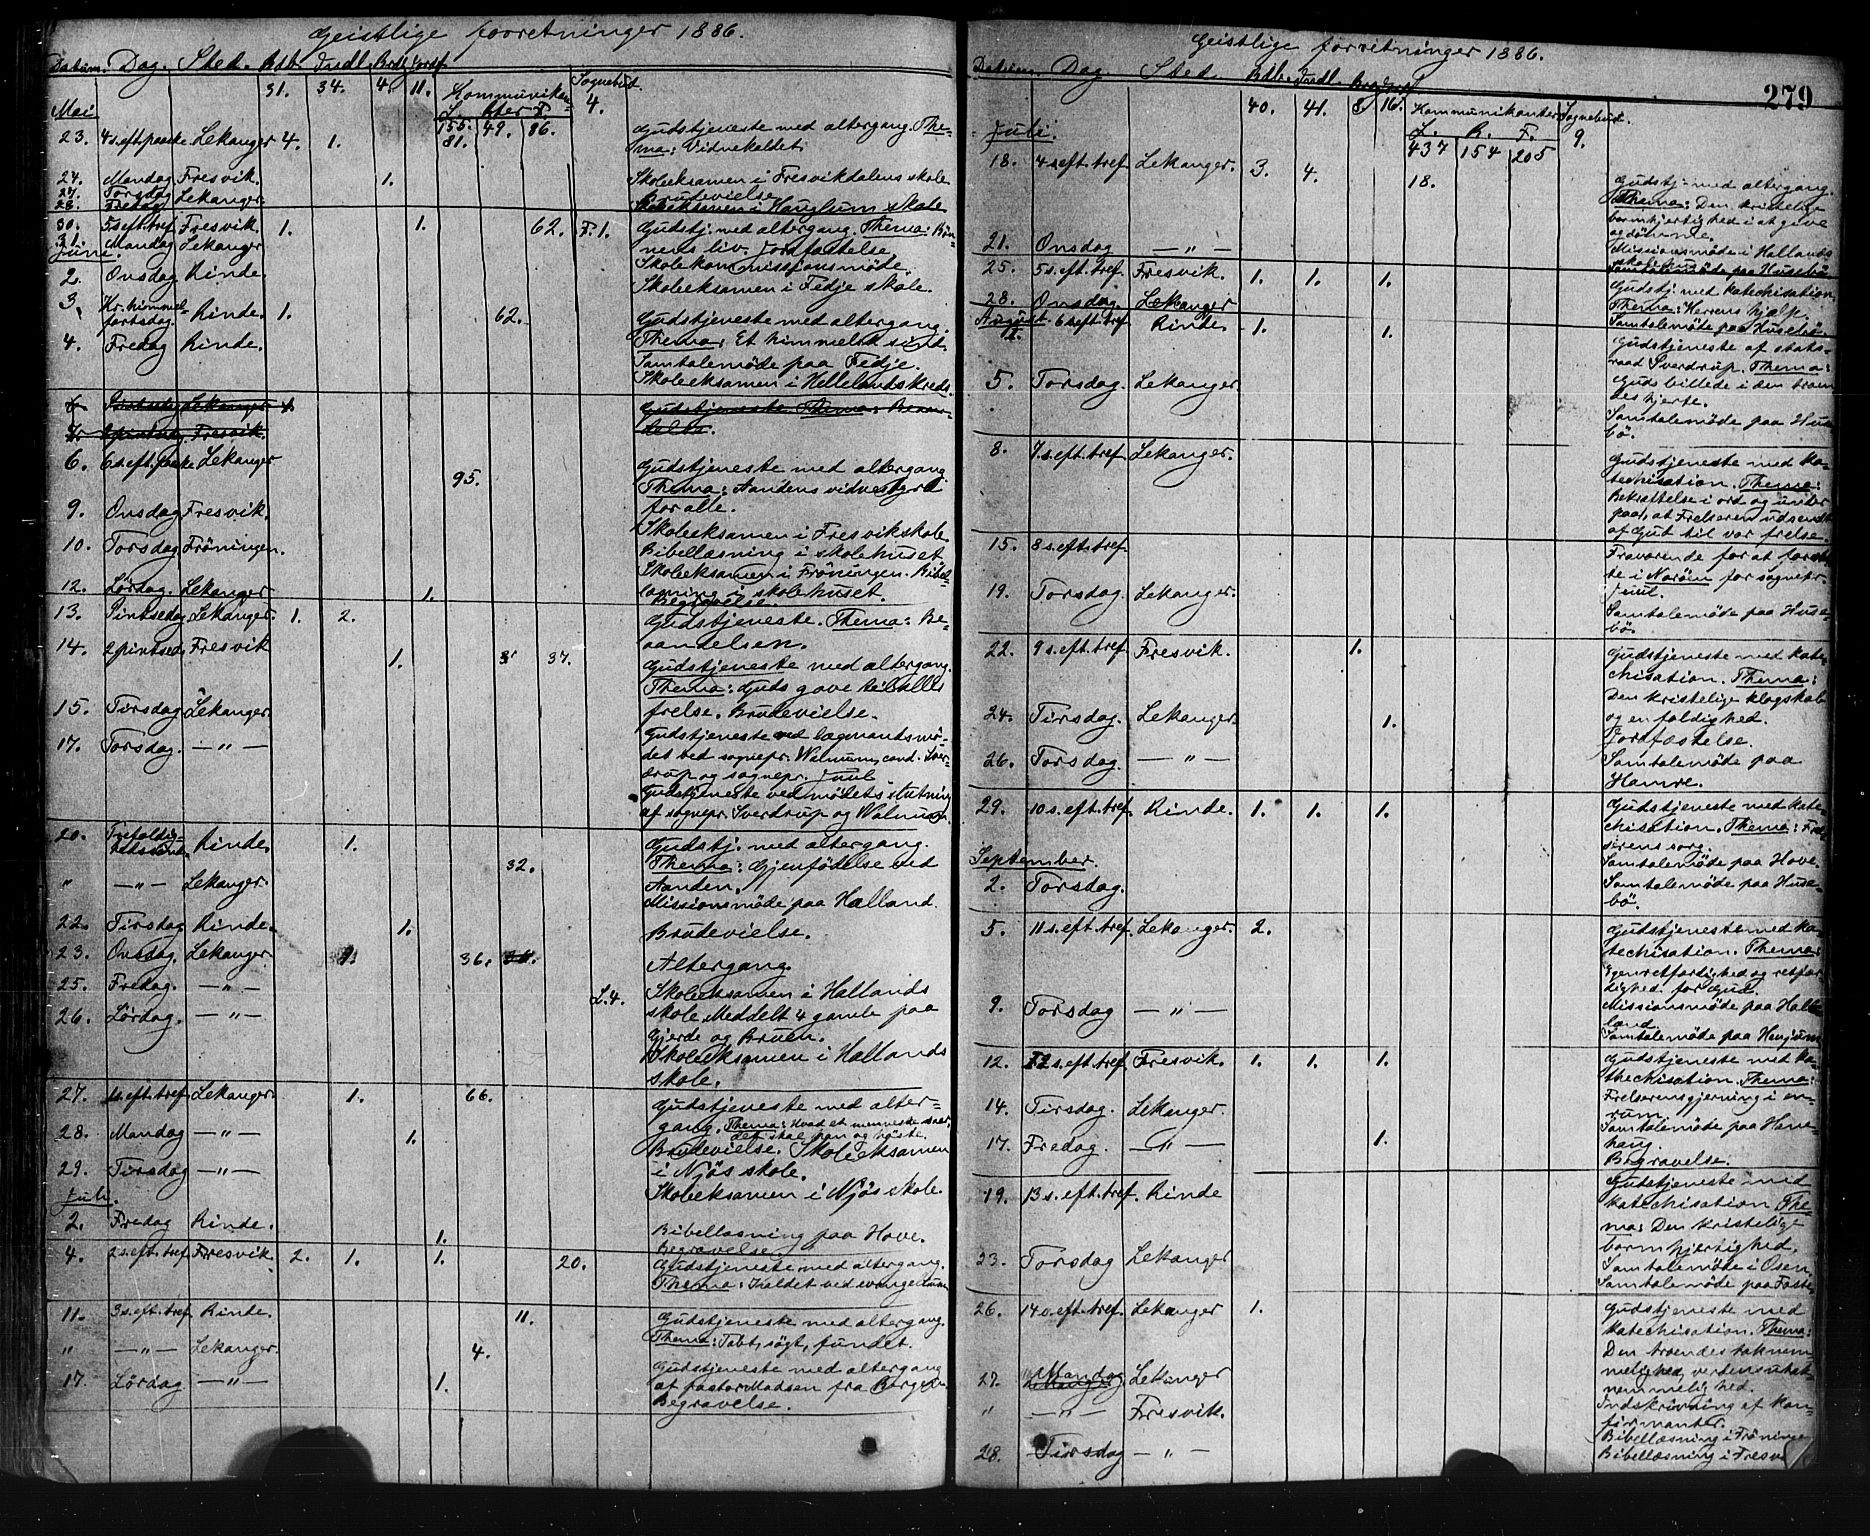 Geistlige forretninger 1886.
Datum. Dag. Sted. Bdb. Indl. Brdv. Jordf. Kommunikanter Sognebud.
31. 34. 4. 11. L. R. F. 4.
155. 49. 86.
Mai
23. 4 s. eft. paaske Lekanger 4. 1. 81. Gudstjeneste med altergang. Thema: Vidnekaldet.
24. Mandag Fresvik. 1. Skoleeksamen i Fresvikdalens skole Brudevielse
27. Torsdag Lekanger.
28. Fredag Skoleeksamen i Hauglum skole
30. 5 s. eft. tref. Fresvik. 1. 1. 62. F. 1. Gudstj. med altergang. Thema: Bønnens liv. Jordfæstelse.
31. Mandag Lekanger Skolekommissionsmöde.
Juni.
2. Onsdag Rinde. Skoleeksamen i Fedje skole.
3. Kr. himmelfartsdag. Rinde. 1. 62. Gudstjeneste med altergang. Thema: Et himmelsk sind.
4. Fredag Rinde. Samtalemöde paa Fedje.
Skoleeksamen i Hellelands kreds.
6. Pintsedag Lekanger 1. Gudstjeneste Thema:
7. 2 pintsed. Fresvik.
6. 6 s. eft. paaske Lekanger 95. Gudstjeneste med altergang
Thema: Aandens vidnesbyrd
for alle.
9. Onsdag Fresvik. Skoleeksamen i Fresvik skole.
Bibellæsning i skolehuset
10. Torsdag Fröningen. Skoleeksamen i Fröningen. Bibellæsning i skolehuset.
12. Lördag. Lekanger 1. Begravelse.
13. Pintsedag Lekanger. 1. 2. Gudstjeneste. Thema: Beaandelsen.
14. 2 pintsed. Fresvik 1. 37. Gudstjeneste med altergang.
Thema: Guds gave til alles
frelse. Brudevielse.
15. Tirsdag Lekanger. Gudstjeneste ved lægmandsmödet ved sognepr. Walnum, cand. Sverdrup og sognepr. Juul
17. Torsdag. — " — Gudstjeneste ved mödets slutning
af sognepr. Sverdrup og Walnum.
20. Trefoldighedssönd. Rinde. 1. 32. Gudstj. med altergang.
Thema: Gjenfödelse ved
Aanden.
" — " — Lekanger. Missionsmöde paa Hælland.
22. Tirsdag Rinde. 1. Brudevielse.
23. Onsdag. Lekanger 1. 36. Altergang.
25. Fredag. — " — L. 4. Skoleeksamen i Hallands
skole. Meddelt 4 gamle paa
Gjerde og Bruen.
26. Lördag. — " — Skoleeksamen i Hallands
skole.
27. 1 s. eft. tref. Lekanger. 1. 66. Gudstjeneste med altergang. Thema: Hvad et menneske saar,
det skal han og höste.
28. Mandag — " — 1. Brudevielse. Skoleeksamen
i Njös skole.
29. Tirsdag — " — Skoleeksamen i Njös skole.
Juli.
2. Fredag Rinde. 1. Bibellæsning paa Hove.
Begravelse
4. 2 s. eft. tref. Fresvik. 2. 1. 1. 20. Gudstjeneste med altergang.
Thema: Kaldet ved evangelium
11. 3 s. eft. tref. Rinde. 11. Gudstjeneste med altergang.
Thema: Tabt, sögt, fundet.
" — " — Lekanger. 4. Gudstjeneste med altergang
af pastor Madsen fra Bergen.
17. Lördag — " — 1. Begravelse.
Geistlige forretninger 1886.
279
Datum. Dag. Sted. Bdb. Indl. Brdv. Jordf. Kommunikanter Sognebud.
40. 41. 8. 16. L. R. F. 9.
437 154 205
Juli.
18. 4 s. eft. tref. Lekanger. 3. 4. 18. Gudstj. med altergang.
Thema: Den kristelige
barmhjertighed i at give
og dömme.
21. Onsdag — " — Missionsmöde i Hallands
skolehus
Samtalemöde paa Husebö
25. 5 s. eft. tref. Fresvik. 1. 1. 1. Gudstj. med katechisation
Thema: Herrens hjælp.
28. Onsdag. Lekanger Samtalemöde paa Husebö.
August
1. 6 s. eft. tref. Rinde. 1. 1. Gudstjeneste af statsraad Sverdrup. Thema:
Guds billede i den troendes hjerte.
5. Torsdag. Lekanger. Samtalemöde paa Husebö.
8. 7 s. eft. tref. Lekanger. Gudstjeneste med katechisation. Thema:
Bekræftelse i ord og under
paa, at Frelseren udsendt
af Gud til vor frelse.
15. 8 s. eft. tref. Fraværende for at forrette i Naröen for sognepr.
Juul.
19. Torsdag. Lekanger. Samtalemöde paa Husebö.
22. 9 s. eft. tref. Fresvik. 1. Gudstjeneste med katechisation. Thema:
Den kristelige klogskab
og enfoldighed.
24. Tirsdag. Lekanger. 1. Jordfæstelse.
26. Torsdag. — " — Samtalemöde paa
Hamre.
29. 10 s. eft. tref. Rinde. 1. 1. 1. Gudstjeneste med katechisation. Thema: Frelserens sorg.
Samtalemöde paa Hove.
September.
2. Torsdag. Samtalemöde paa Husebö.
5. 11 s. eft. tref. Lekanger. 2. Gudstjeneste med katechisation. Thema:
Egenretfærdighed og retfærdighed for Gud.
Missionsmöde paa Halland
9. Torsdag — " — Samtalemöde paa Henjum
12. 12 s. eft. tref. Fresvik. 1. 1. 1. Gudstjeneste med katechisation. Thema:
Frelserens gjerning i enrum.
14. Tirsdag. Lekanger. Samtalemöde paa Hanehaug.
17. Fredag. — " — 1. Begravelse.
19. 13 s. eft. tref. Rinde Gudstjeneste med
katechisation Thema: Den kristelige
barmhjertighed.
Samtalemöde i Osen.
23. Torsdag Lekanger Samtalemöde paa
26. 14 s. eft. tref. Lekanger 1. Gudstjeneste med
katechisation. Thema:
Den troendes taknemmelighed, verdens utaknemmelighed.
27. Mandag Lekanger Indskrivning af konfirmanter.
" — " — Fresvik. Bibellæsning i Fröningen
28. Tirsdag — " — Bibellæsning i Fresvik